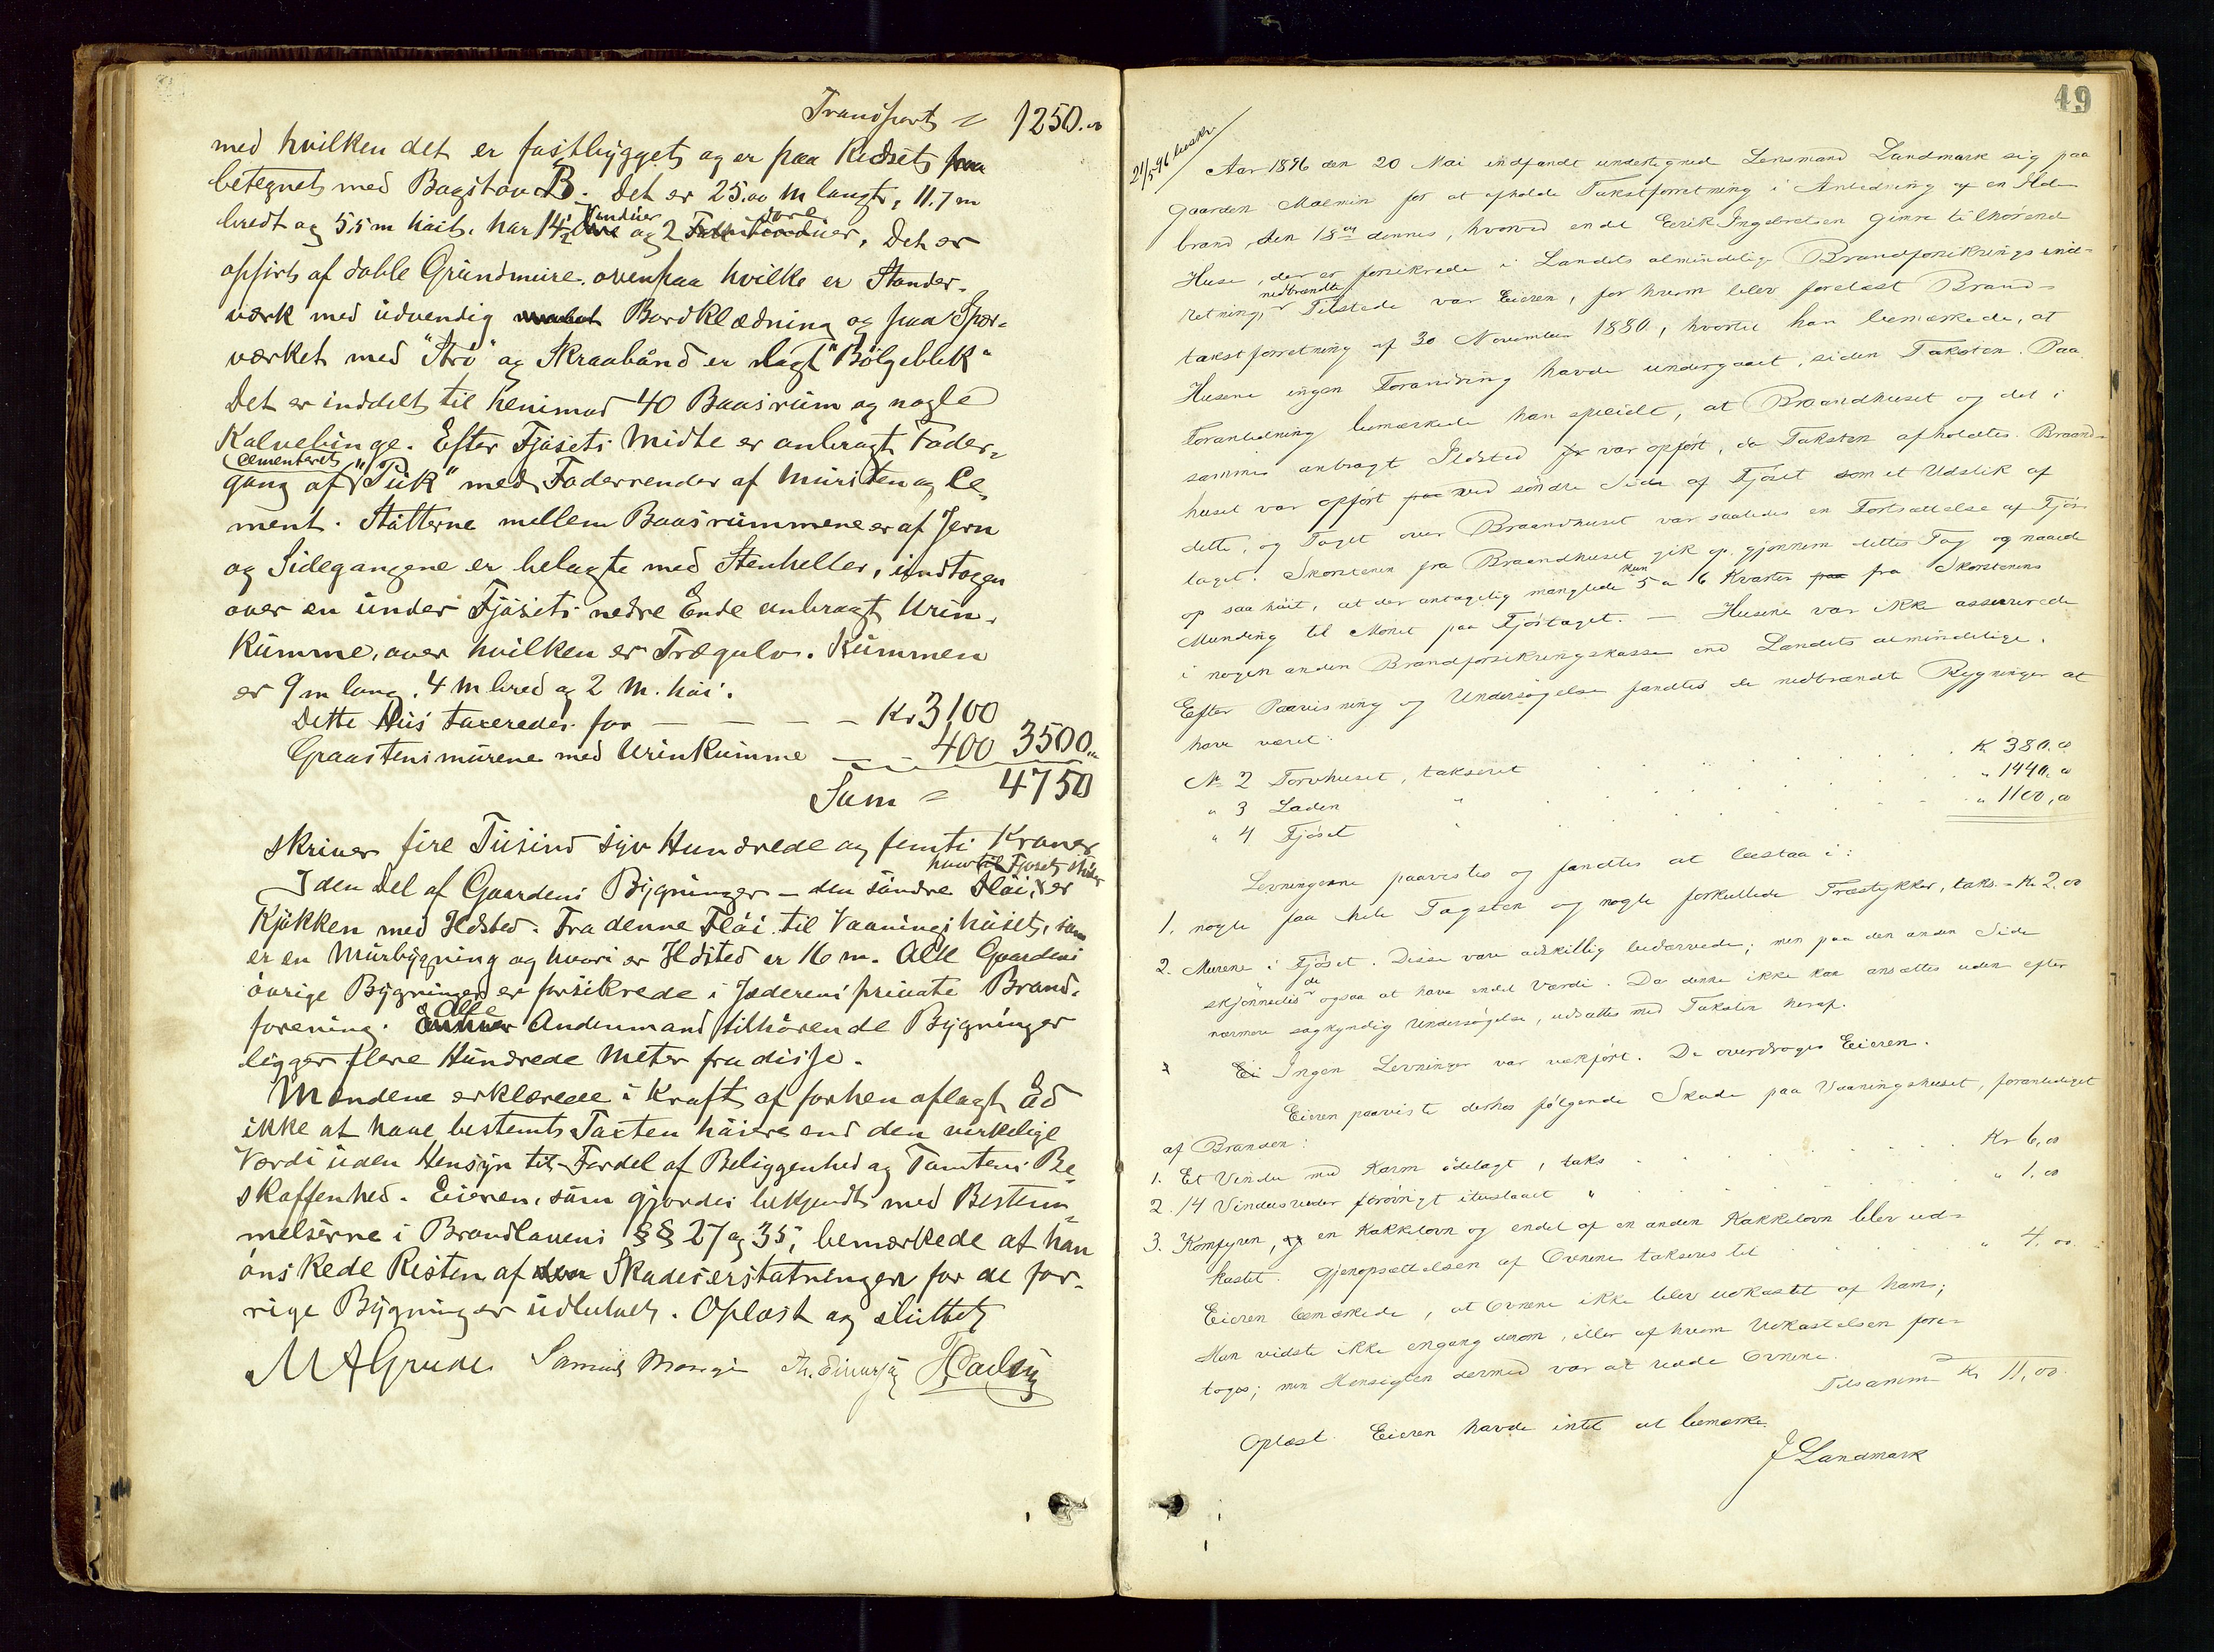 Transport = 1250.00
med hvilken det er fastbygget og er paa Ridset
betegnet med Bogstav B. Det er 25.00 m langt, 11.7 m
bredt og 5,5 m høit, har 14 1/2 Vinduer og 2 Døre. Det er
opført af doble Grundmure, ovenpaa hvilke er Stander-
værk med udvendig Bordklædning og paa Spær-
værket med "Trö" og Skraabånd er lagt "Bölgeblik"
Det er inddelt til henimod 40 Baasrum og nogle
Kalvebinge. Efter Fjösets Midte er anbragt Foder-
gang af cementeret "Puk" med Foderrender af Mursten og Ce-
ment. Støtterne mellem Baasrummene er af Jern
og Sidegangene er belagte med Stenheller, indtagen
over en under Fjösets nedre Ende anbragt Urin-
Kumme, over hvilken er Trægulv. Kummen
er 9 m lang, 4 m bred og 2 m. höi.
Dette Hus taxeredes for — — — — Kr 3100
Graastensmurene med Urinkumme — 400 3500.00
Sum = 4750
skriver fire Tusind syv Hundrede og femti Kroner
I den Del af Gaardens Bygninger – den söndre Flöi, hvortil Fjöset støder, er
Kjökken med Ildsted. Fra denne Flöi til Vaaningshuset, som
er en Murbygning og hvori er Ildsted er 16 m. Alle Gaardens
övrige Bygninger er forsikrede i Jæderens private Brand-
forening. Alle Andenmand tilhörende Bygninger
ligger flere Hundrede Meter fra disse.
Mændene erklærede i Kraft af forhen aflagt Ed
ikke at have bestemt Taxten höiere end den virkelige
Værdi uden Hensyn til Fordel af Beliggenhed og Tomtens Be-
skaffenhed. Eieren, som gjordes bekjendt med Bestem-
melserne i Brandlovens §§ 27 og 35, bemærkede at han
önskede Resten af Skadeserstatningen for de for-
rige Bygninger udbetalt. Oplæst og sluttet
M A Grude Samuel
49
21/5 96 beskr.
Aar 1896 den 20 Mai indfandt undertegnede Lensmand Landmark sig paa
Gaarden Malmin for at afholde Takstforretning i Anledning af en Ilde-
brand den 18de dennes, hvorved endel Eerik Ingebretsen Gimre tilhörende
Huse, der er forsikrede i Landets almindelige Brandforsikringsind-
retning, nedbrændte. Tilstede var Eieren, for hvem blev forelæst Brand-
takstforretning af 30 November 1880, hvortil han bemærkede, at
Husene ingen Forandring havde undergaaet, siden Taksten. Paa
Foranledning bemærkede han specielt, at Braandhuset og det i
sammes anbragt Ildsted var opfört, da Taksten afholdtes. Braand-
huset var opfört ved söndre Side af Fjöset som et Udstik af
dette, og Taget over Braandhuset var saaledes en Fortsættelse af Fjös-
taget. Skorstenen fra Braandhuset gik op gjennem dettes Tag og naaede
op saa höit, at der antagelig manglede kun 5 a 6 Kvarter fra Skorstenens
Munding til Mönet paa Fjöstaget. — Husene var ikke assurerede
i nogen anden Brandforsikringskasse end Landets almindelige.
Efter Paavisning og Undersögelse fandtes de nedbrændte Bygninger at
have været:
No 2 Torvhuset, takseret . . . Kr. 380.00
" 3 Laden " . . . " 1440,00
" 4 Fjöset " . . . " 1100,00
Levningerne paavistes og fandtes at bestaa i:
1. nogle faa hele Tagsten og nogle forkullede Træstykker, taks. - Kr. 2.00
2. Murene i Fjöset. Disse vare adskillig bedærvede; men paa den anden Side
skjönnedes de ogsaa at have endel Værdi. Da denne ikke kan ansættes uden efter
nærmere sagkyndig Undersögelse, udsattes med Taksten heraf.
Ingen Levninger var vækfört. De overdroges Eieren.
Eieren paaviste derhos fölgende Skade paa Vaaningshuset, foranlediget
af Branden:
1. Et Vindu med Karm ödelagt, taks . . . Kr 6,00
2. 14 Vinduesruder forövrigt ituslaaet " . . . " 1,00
3. Komfyren, en Kakkelovn og endel af en anden Kakkelovn blev ud-
kastet. Gjenopsættelsen af Ovnene takseres til . . . " 4,00
Eieren bemærkede, at Ovnene ikke blev udkastet af ham;
Han vidste ikke engang derom, eller af hvem Udkastelsen fore-
toges; men Hensigten dermed var at redde Ovnene.
Tilsammen Kr 11,00
Oplæst. Eieren havde intet at bemærke.
J Landmark